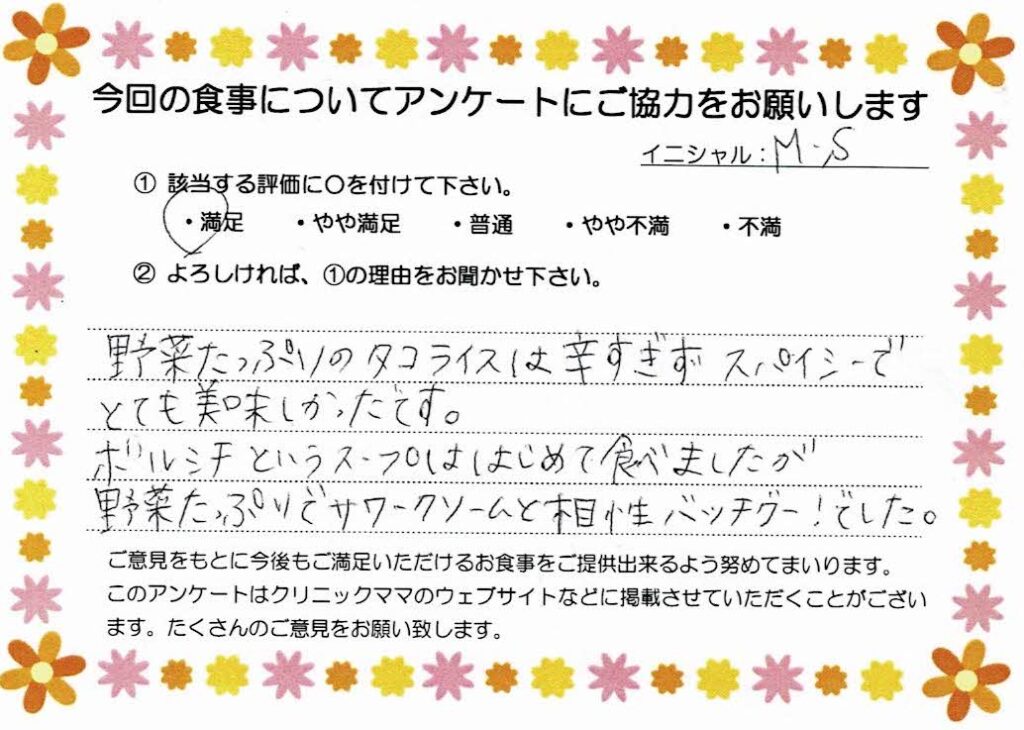 今回の食事についてアンケートにご協力をお願いします
イニシャル：M・S
① 該当する評価に〇を付けて下さい。
・満足 ・やや満足 ・普通 ・やや不満 ・不満
② よろしければ、①の理由をお聞かせ下さい。
野菜たっぷりのタコライスは辛すぎず スパイシーで
とても美味しかったです。
ボルシチというスープははじめて食べましたが
野菜たっぷりでサワークソームと相性バッチグー！でした。
ご意見をもとに今後もご満足いただけるお食事をご提供出来るよう努めてまいります。
このアンケートはクリニックママのウェブサイトなどに掲載させていただくことがござい
ます。たくさんのご意見をお願い致します。